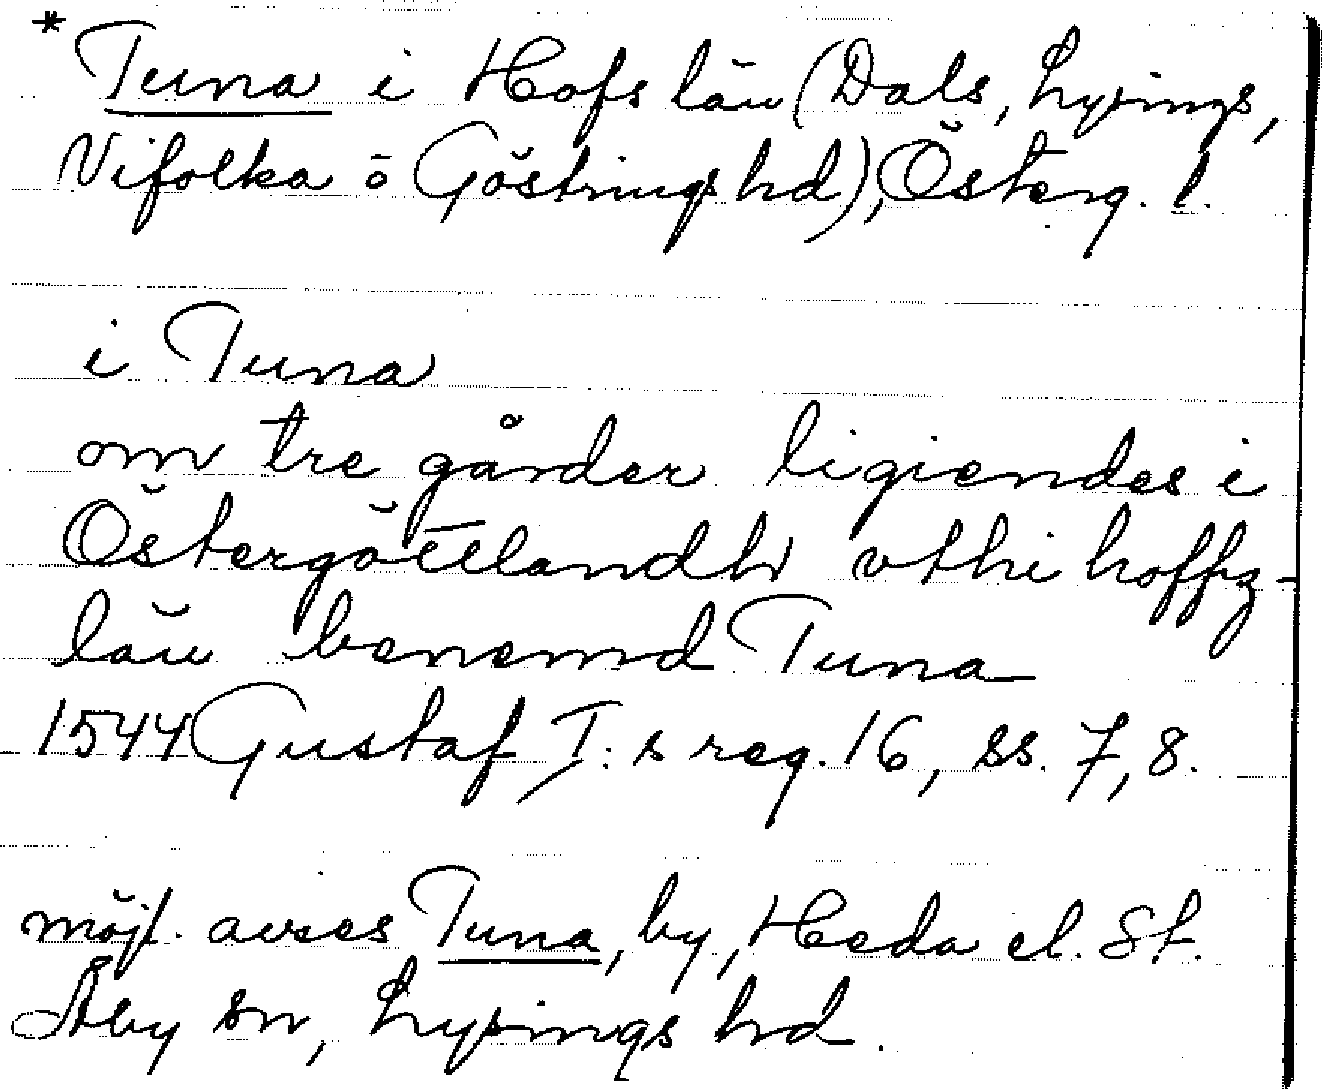 * Tuna i Hofs län (Dals, Lysings,
Vifolka o Göstrings hd), Österg. l.
i Tuna
om tre gårder ligiendes i
Östergöttlandh vthi hoffz-
län benemd Tuna
1544 Gustaf I:s reg. 16, ss. 7, 8.
möjl. avses Tuna, by, Heda el. St.
Åby sn, Lysings hd.